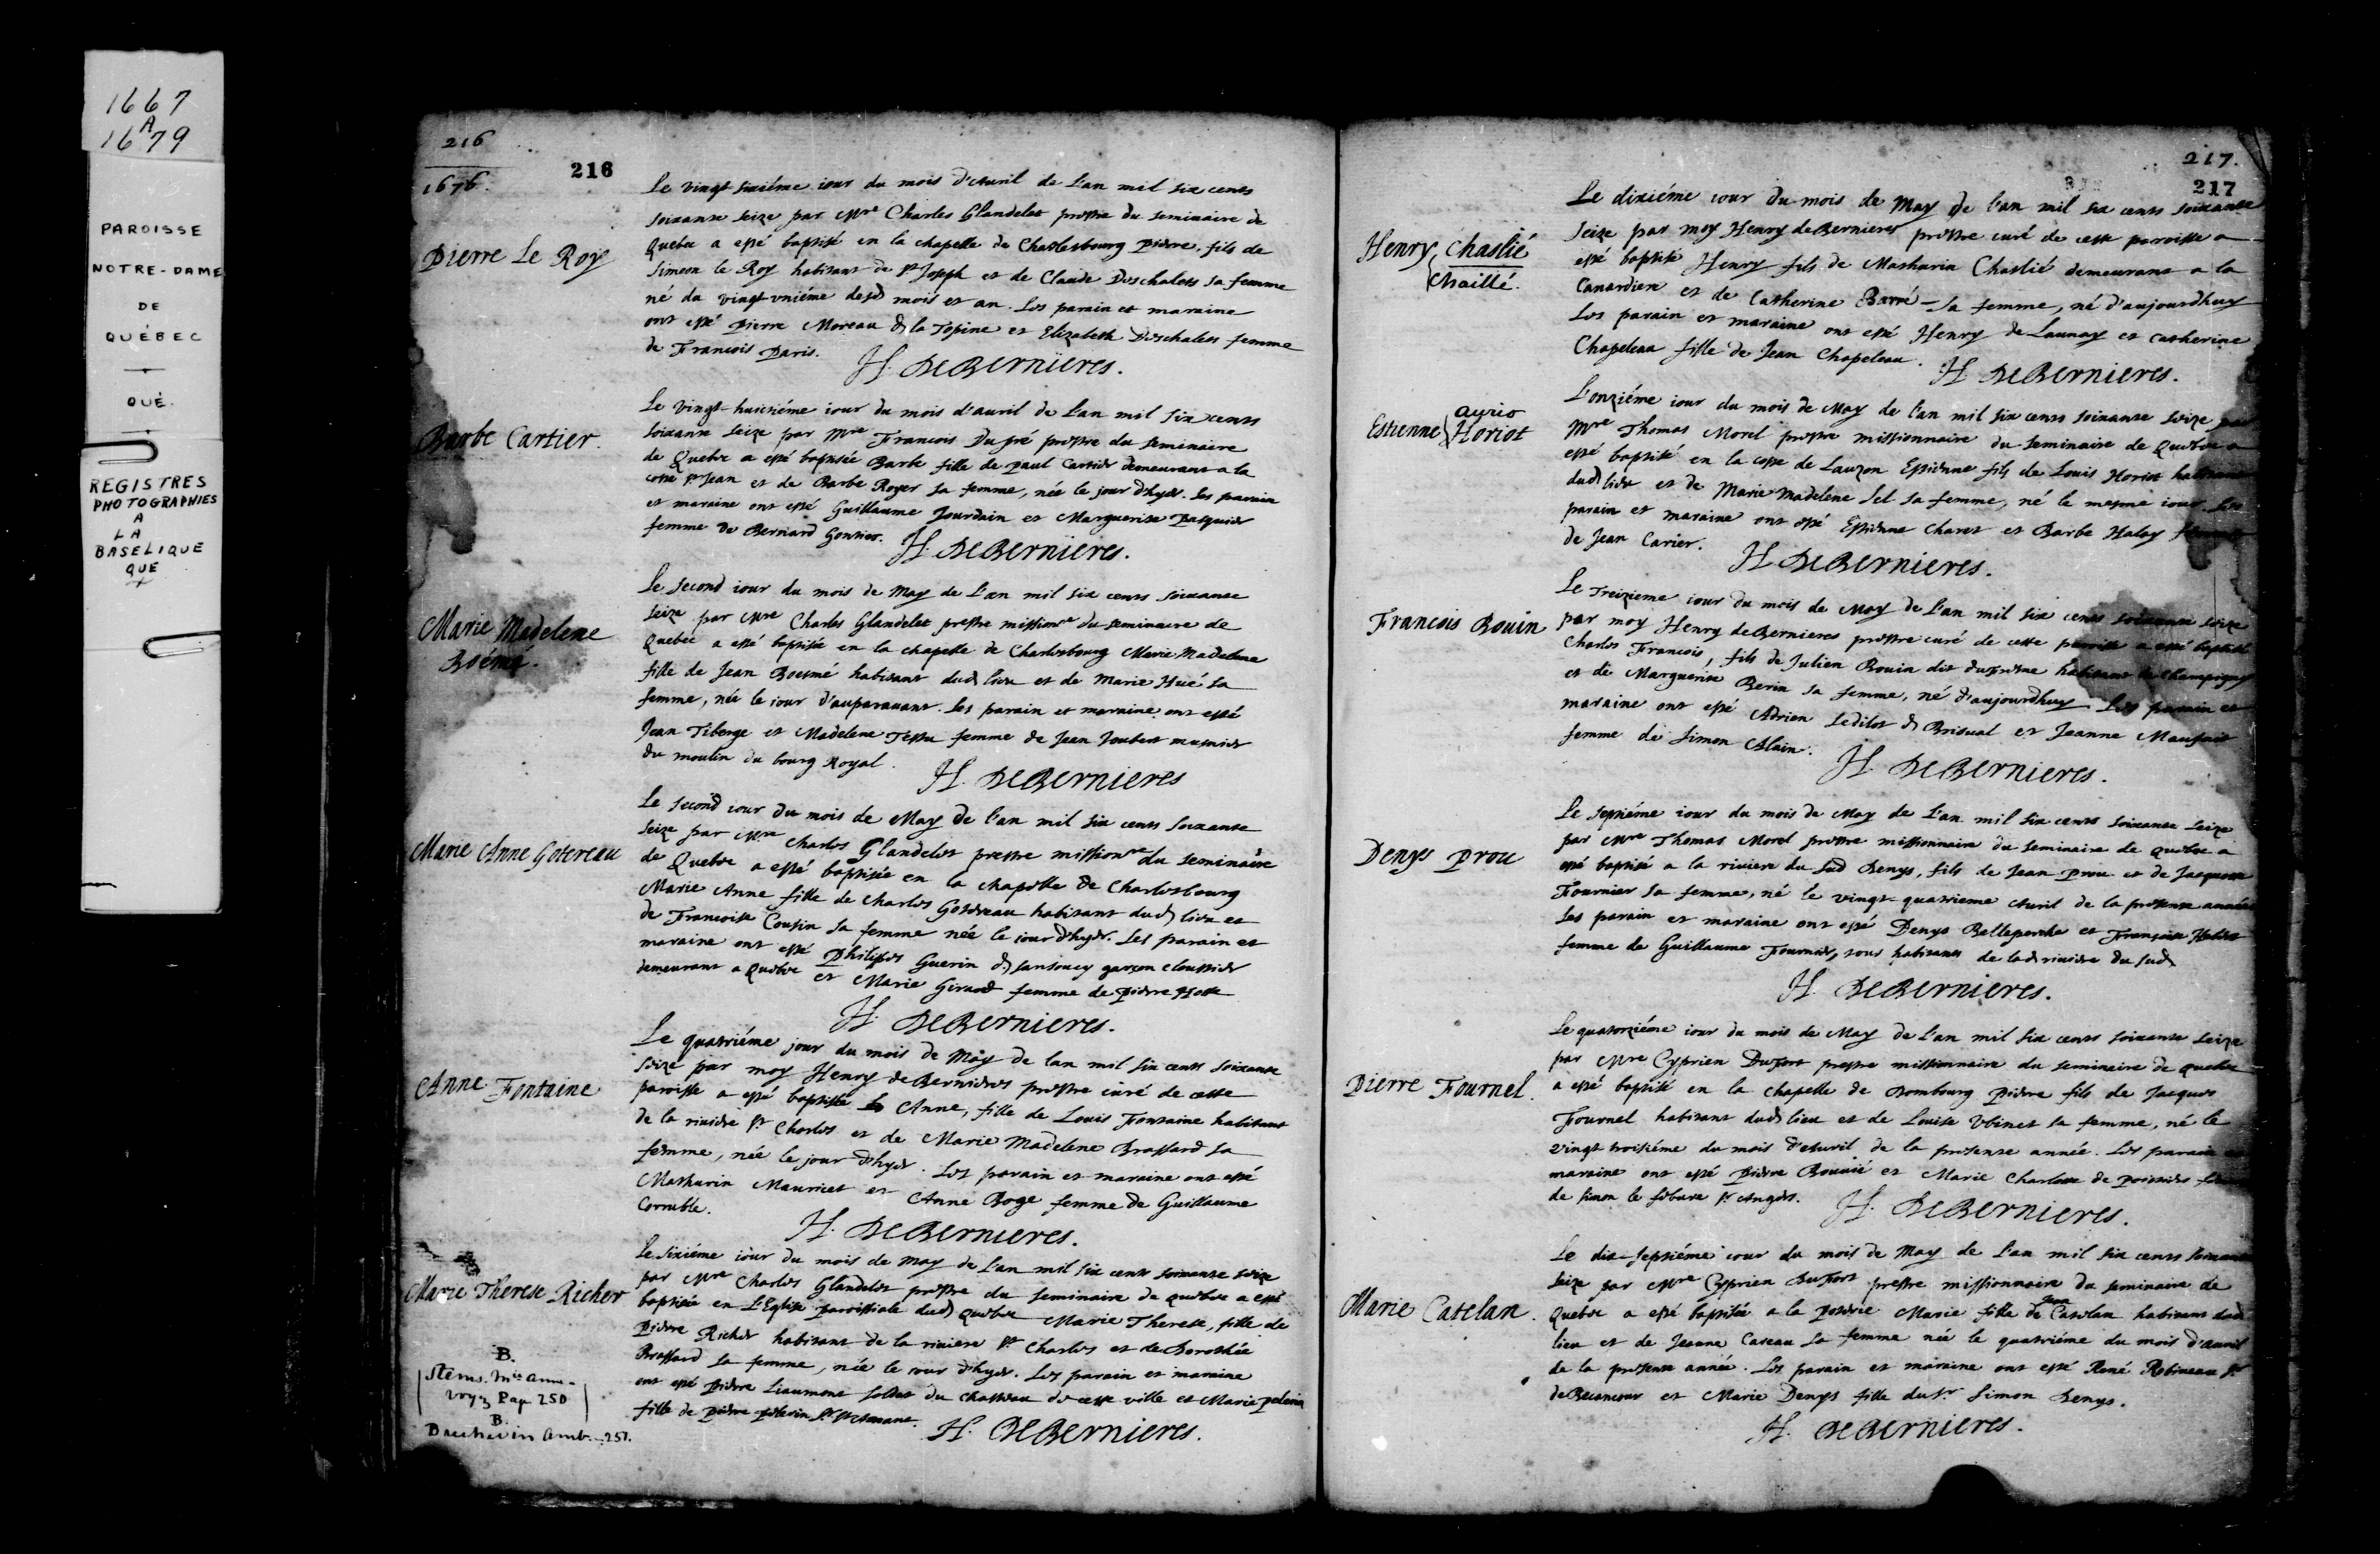 1667
A
1679
PAROISSE
NOTRE-DAME
DE
QUÉBEC
QUÉ.
REGISTRES
PHOTOGRAPHIES
A
LA
BASELIQUE
QUE
216
216
1676.
Pierre Le Roy
Le vingt sixiéme iour du mois d'Auril de l'an mil six cents
soixante seize par Mre Charles Glandelet prestre du seminaire de
Quebec a esté baptisé en la chapelle de Charlesbourg Pierre, fils de
Simeon le Roy habitant de St Joseph et de Claude Deschalets sa femme
né du vingt-vniéme desd mois et an. Les parain et maraine
ont esté Pierre Moreau d la Topine et Elizabeth Deschalets femme
de Francois Paris.
H. DeBernieres.
Barbe Cartier.
Le vingt-huictiéme iour du mois d'auril de l'an mil six cents
soixante seize par Mre Francois Dupré prestre du seminaire
de Quebec a esté baptisée Barbe fille de Paul Cartier demeurant a la
coste St Jean et de Barbe Royer sa femme, née le jour d'hyer. Les parain
et maraine ont esté Guillaume Jourdain et Marguerite Pasquier
femme de Bernard Gontier.
H. DeBernieres.
Marie Madelene
Boémé.
Le second iour du mois de May de l'an mil six cents soixante
seize par Mre Charles Glandelet prestre missionre du seminaire de
Quebec a esté baptisée en la chapelle de Charlesbourg Marie Madelene
fille de Jean Boesmé habitant dud lieu et de Marie Hué sa
femme, née le iour d'auparauant. Les parain et maraine ont esté
Jean Tiberge et Madelene Testu femme de Jean Joubert musnier
du moulin du bourg Royal.
H. DeBernieres
Marie Anne Gotereau
Le second iour du mois de May de l'an mil six cents soixante
seize par Mre Charles Glandelet prestre missionre du seminaire
de Quebec a esté baptisée en la chapelle de Charlesbourg
Marie Anne fille de Charles Gotereau habitant dud lieu et
de Francoise Cousin sa femme née le iour d'hyer. Les parain et
maraine ont esté Philipes Guerin d sansoucy garçon cloustier
demeurant a Quebec et Marie Giraud femme de Pierre
H. DeBernieres.
Anne Fontaine
Le quatriéme jour du mois de May de lan mil six cents soixante
seize par moy Henry deBernieres prestre curé de cette
paroisse a esté baptisée Anne, fille de Louis Fontaine habitant
de la riuiere St Charles et de Marie Madelene Brassard sa
femme, née le jour d'hyer. Les parain et maraine ont esté
Mathurin Mauricet et Anne Boge femme de Guillaume
Corruble.
H. DeBernieres.
Marie Therese Richer
Le sixiéme iour du mois de may de l'an mil six cents soixante seize
par Mre Charles Glandelet prestre du seminaire de quebec a esté
baptisée en l'Eglise paroissiale dud quebec Marie Therese, fille de
Pierre Richer habitant de la riuiere St Charles et de Dorothée
Brassard sa femme, née le iour d'hyer. Les parain et maraine
ont esté Pierre Liaumont soldat du Chasteau de cette ville et Marie pelerin
fille de Pierre pelerin Sr
H. DeBernieres.
B.
Stems. Mie Anne
voyz Page 250
B.
251.
217.
217
Henry, Chaslié
Chaillé.
Le dixiéme iour du mois de May de l'an mil six cents soixante
seize par moy Henry deBernieres prestre curé de cette paroisse a
esté baptisé Henry fils de Mathurin Chaslié demeurant a la
Canardiere et de Catherine Barré sa femme, né d'aujourdhuy
Les parain et maraine ont esté Henry de Launay et Catherine
Chapeleau fille de Jean Chapeleau.
H. DeBernieres.
aurio
Estienne Horiot
L'onziéme iour du mois de May de l'an mil six cents soixante seize par
Mre Thomas Morel prestre missionnaire du seminaire de Quebec a
esté baptisé en la coste de Lauzon Estienne fils de Louis Horiot habitant
dud lieu et de Marie Madelene Sel sa femme, né le mesme iour. Les
parain et maraine ont esté Estienne Charet et Barbe Halay femme
de Jean Carier.
H. DeBernieres.
Francois Bouin
Le Treizieme iour du mois de May de l'an mil six cents soixante seize
par moy Henry deBernieres prestre curé de cette paroisse a esté baptisé
Charles Francois, fils de Julien Bouin dit dufresne habitant de Champigny
et de Marguerite Berin sa femme, né d'aujourdhuy. Les parain et
maraine ont esté Adrien Sedilot d Brisual et Jeanne Maufait
femme de Simon Alain.
H. DeBernieres.
Denys Prou
Le septiéme iour du mois de May de l'an mil six cents soixante seize
par Mre Thomas Morel prestre missionnaire du seminaire de Quebec a
esté baptisé a la riuiere du Sud Denys, fils de Jean Prou et de Jacquette
Fournier sa femme, né le vingt-quatrieme Auril de la presente année
Les parain et maraine ont esté Denys Belleperche et Françoise Hebert
femme de Guillaume Fournier, tous habitants de lad riuiere du sud
H. DeBernieres.
Pierre Fournel.
Le quatorziéme iour du mois de May de l'an mil six cents soixante seize
par Mre Cyprien Dufort prestre missionnaire du seminaire de quebec
a esté baptisé en la chapelle de Dombourg Pierre fils de Jacques
Fournel habitant dud lieu et de Louise Vbinet sa femme, né le
vingt troisiéme du mois d'Auril de la presente année. Les parain et
maraine ont esté Pierre Bouuié et Marie Charlotte de Poitiers
de simon le febure Sr Angers.
H. DeBernieres.
Marie Catelan.
Le dix-septiéme iour du mois de May de l'an mil six cents soixante
seize par Mre Cyprien Dufort prestre missionnaire du seminaire de
Quebec a esté baptisée a la Poterie Marie fille de Jean Catelan habitant dud
lieu et de Jeanne Cateau sa femme née le quatriéme du mois d'auril
de la presente année. Les parain et maraine ont esté René Robineau Sr
deBecancour et Marie Denys fille du Sr Simon Denys.
H. DeBernieres.